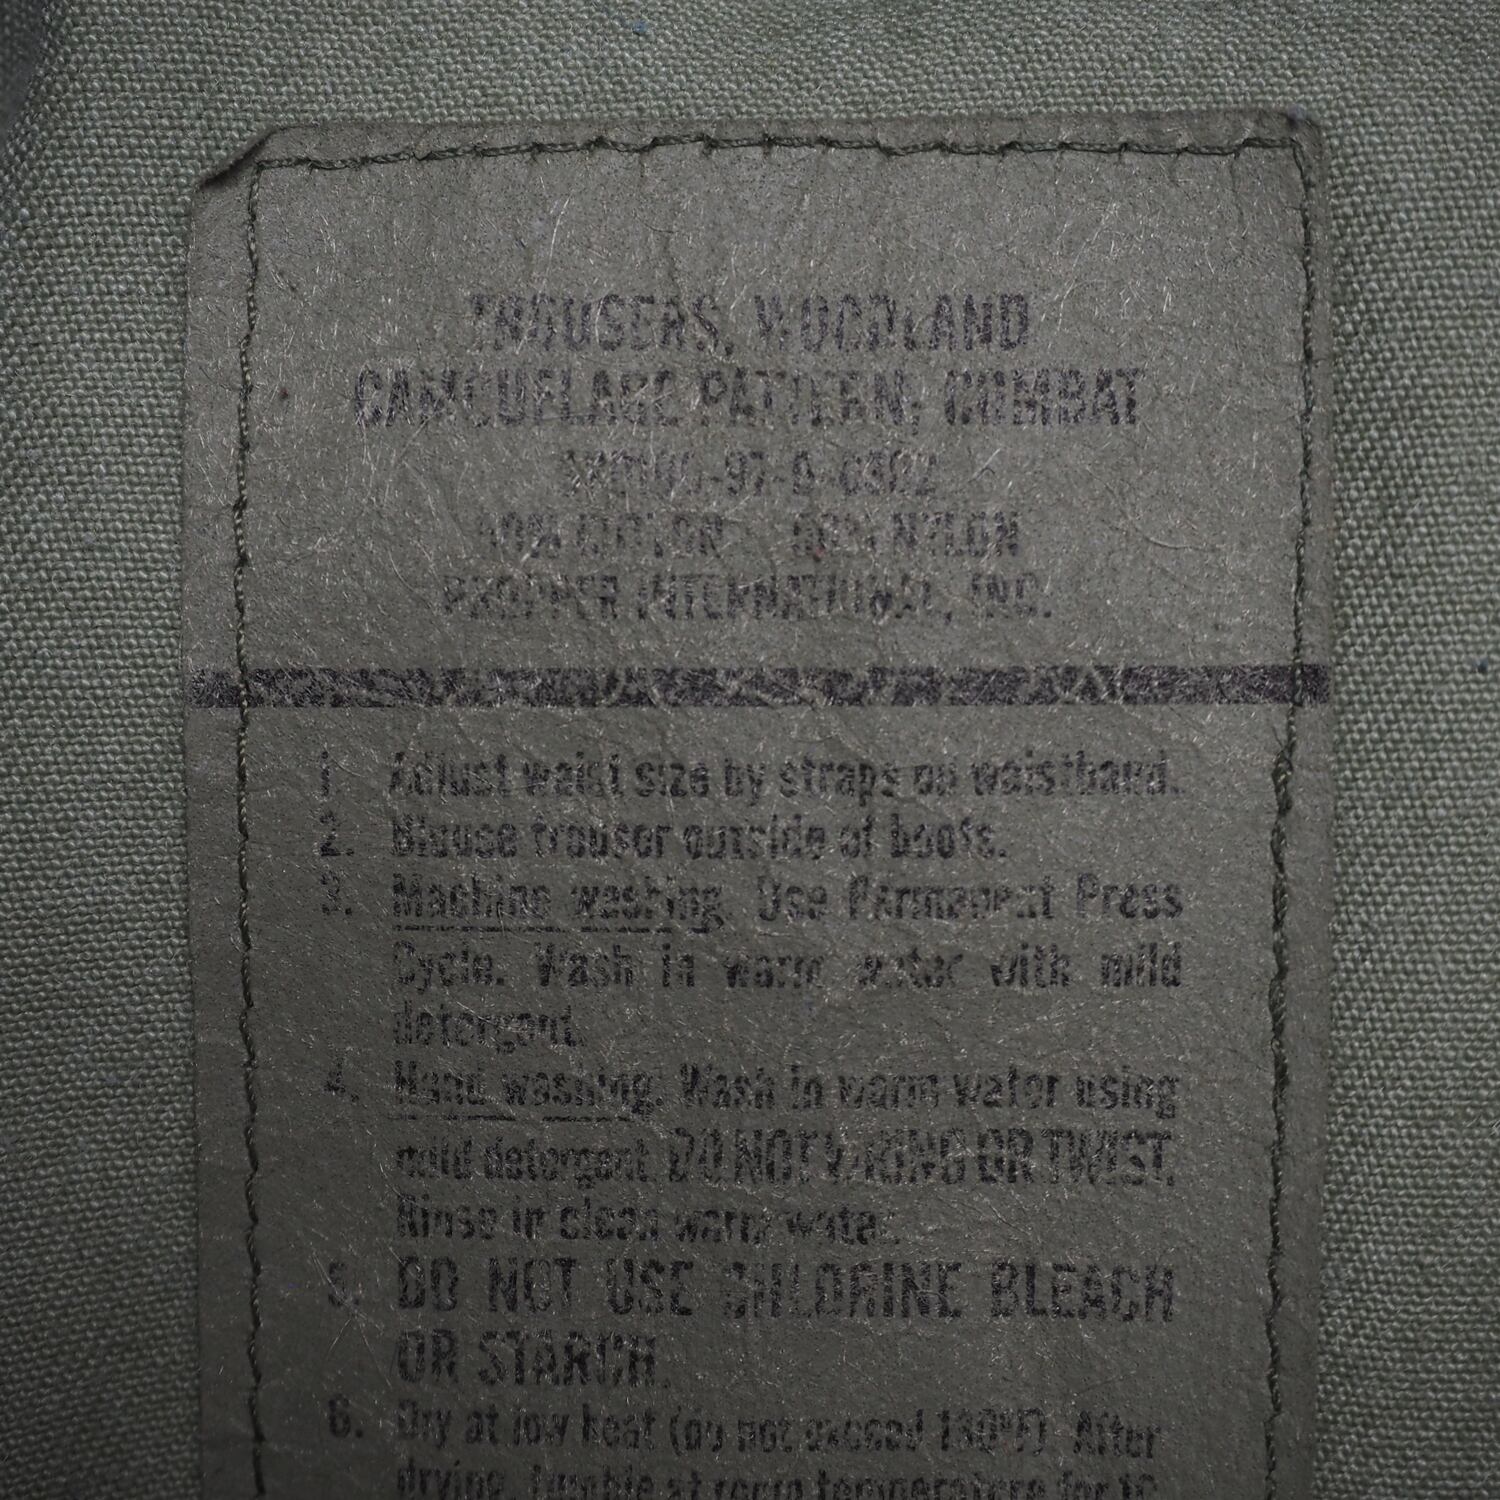 TROUSERS, WOODLAND
CAMOUFLAGE PATTERN, COMBAT
-97-D-0302
50% COTTON 50% NYLON
PROPPER INTERNATIONAL, INC.
1. Adjust waist size by straps on waistband.
2. Blouse trouser outside of boots.
3. Machine washing. Use Permanent Press
Cycle. Wash in warm water with mild
detergent.
4. Hand washing. Wash in warm water using
mild detergent. DO NOT WRING OR TWIST.
Rinse in clean warm water.
5. DO NOT USE CHLORINE BLEACH
OR STARCH.
6. Dry at low heat (do not exceed 130°F). After
drying, tumble at room temperature for 10